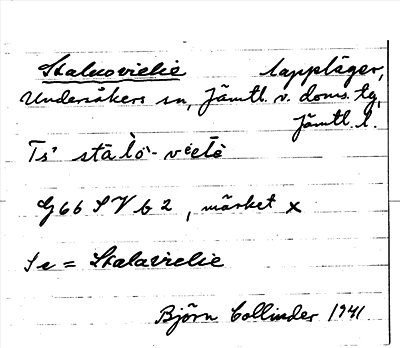 Staluovielie lappläger,
Undersåkers sn, Jämtl. v. doms. tg,
Jämtl. l.
Ts' stālò- viełē
G66 SV b 2, märket x
Se = Stalavielie
Björn Collinder 1941